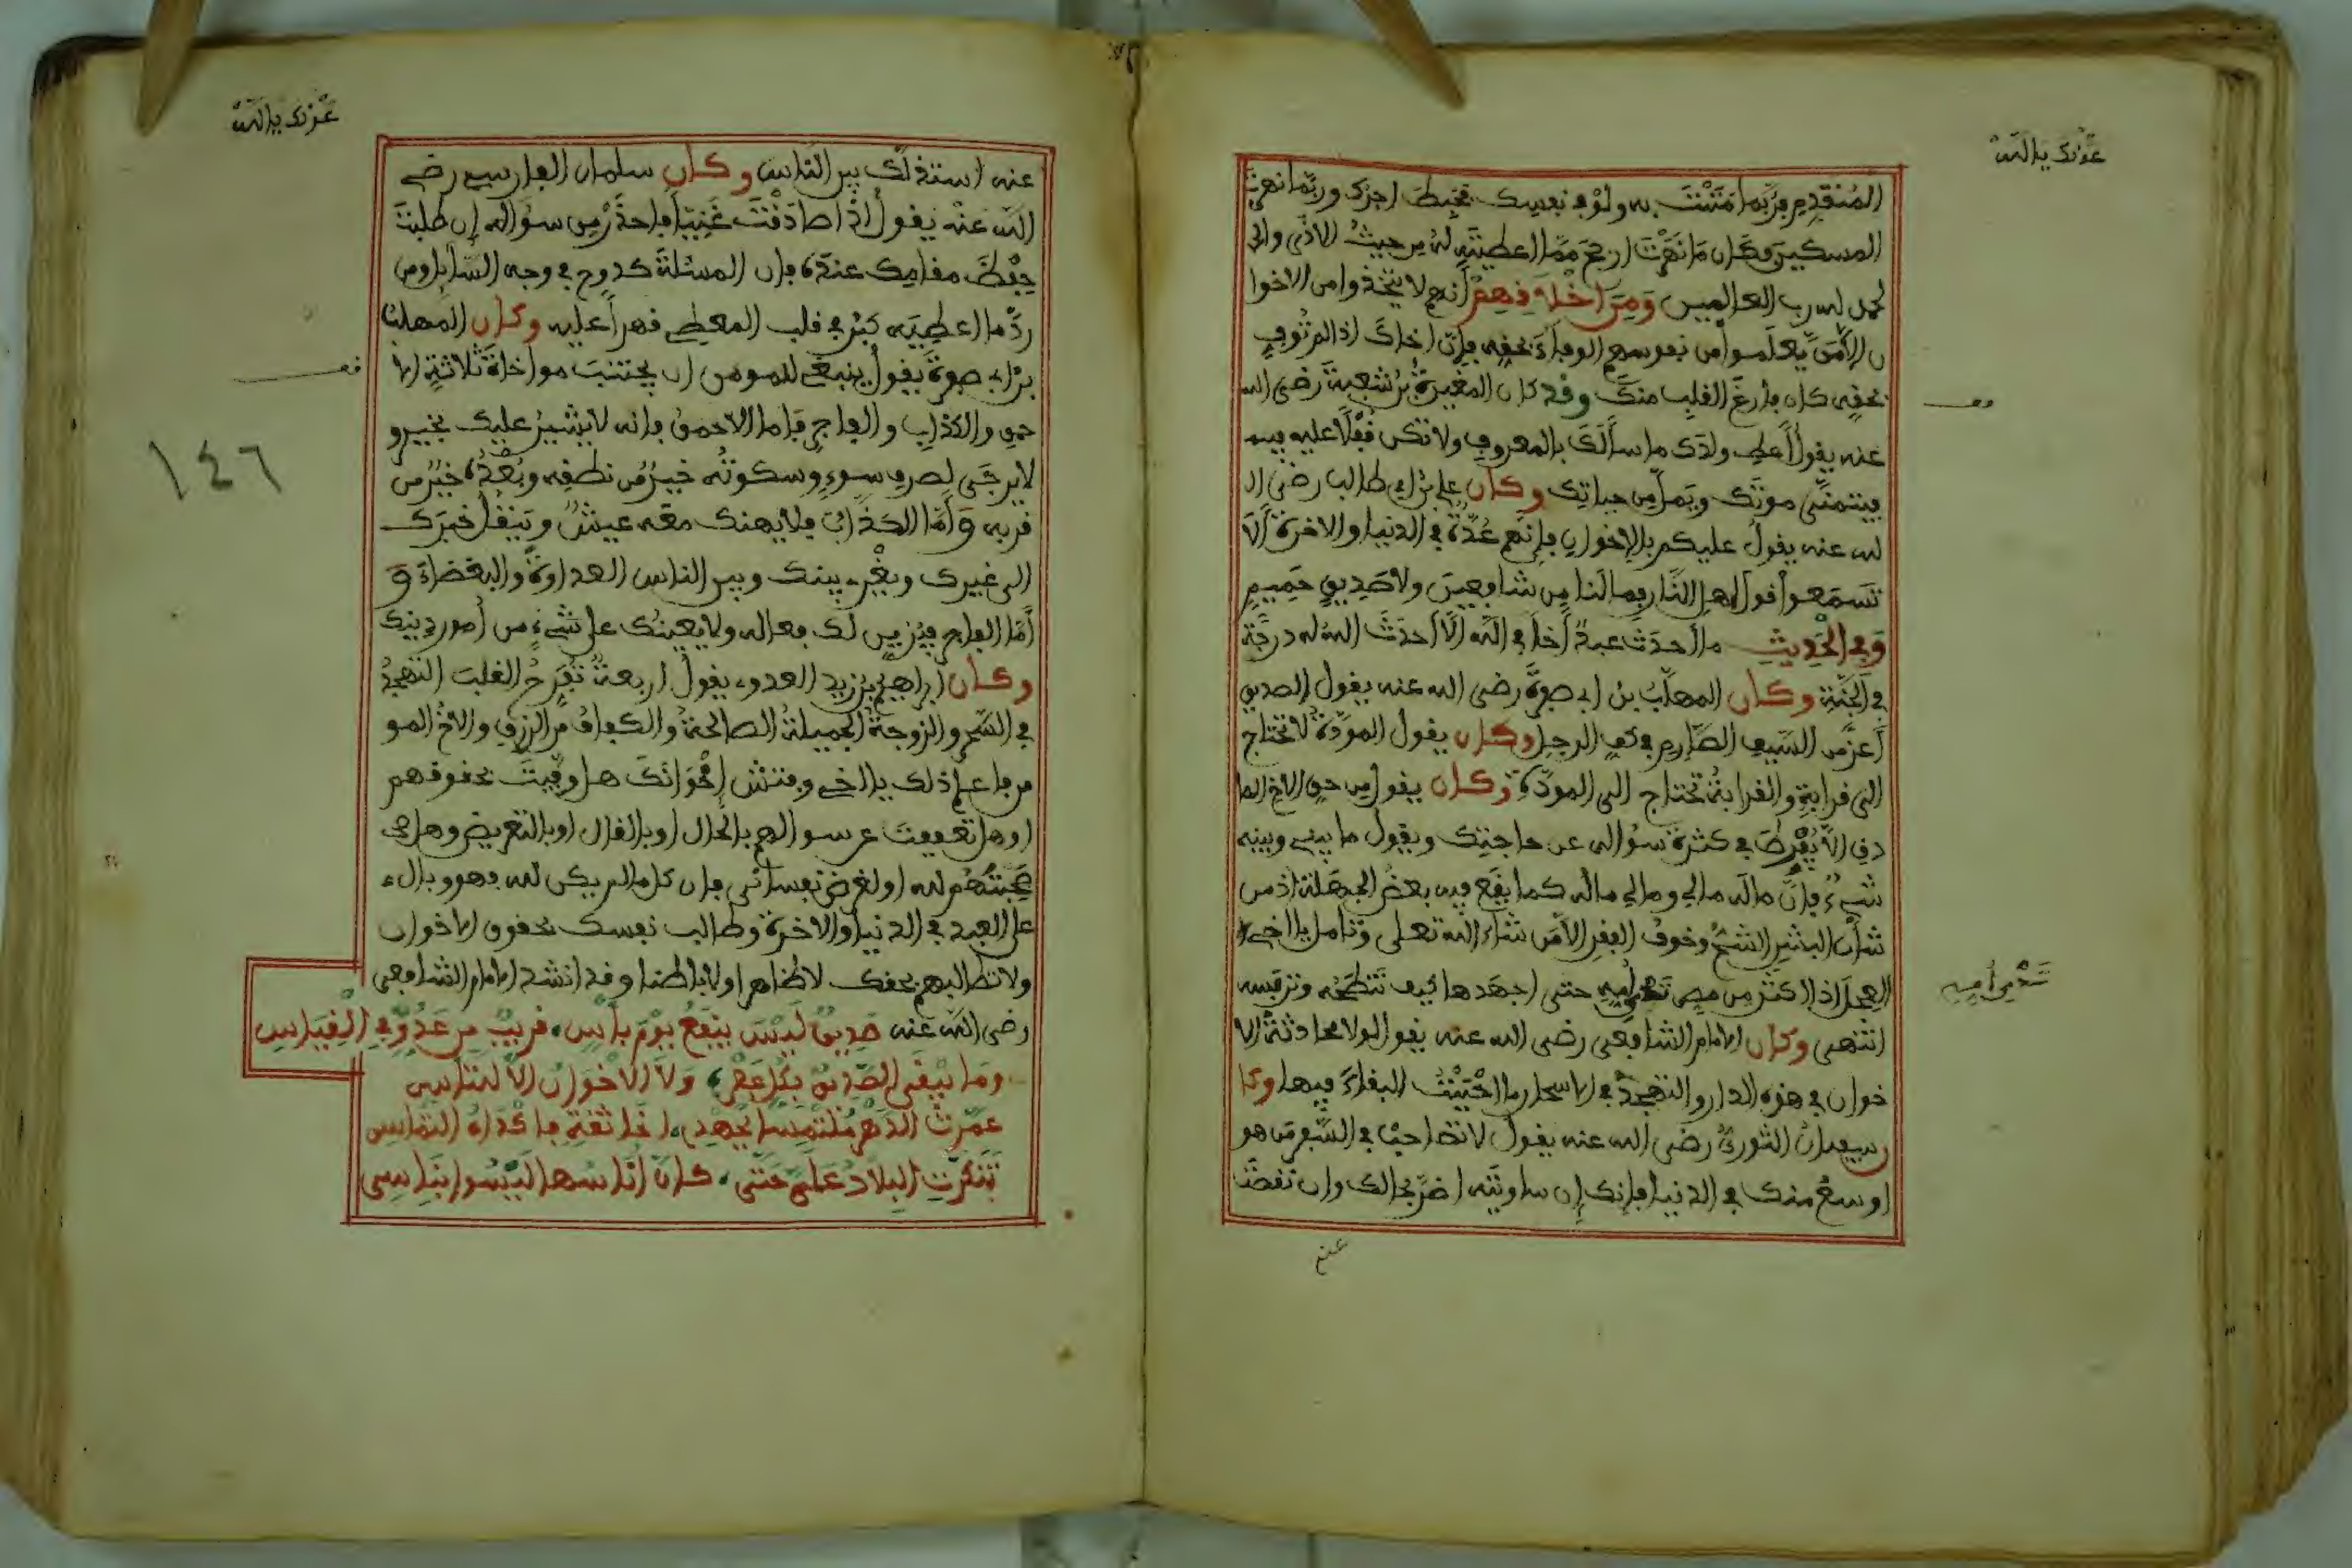 عونك يا الله
المتقدم فربما مننت به ولو في نفسك فيحبط اجرك وربما نهرت
المسكين فكان ما نهرت ارجح مما اعطيته له من حيث الاذى والـ
حمد لله رب العالمين ومن اخلاقهم انهم لا يتخذوا من الاخوا
ن الا من يعلموا من نفوسهم الوفاء بحقه فإن اخاك اذا لم توف
بحقه كان فارغ القلب منك وقد كان المغيرة بن شعبة رضي الله
عنه يقول أعط ولدك ما سألك بالمعروف ولا تكن قفلا عليه
فيتمنى موتك ويمل من حياتك وكان علي بن ابي طالب رضي ا
لله عنه يقول عليكم بالإخوان فإنهم عدة في الدنيا والاخرة ألا
تسمعوا قول اهل النار فما لنا من شافعين ولا صديق حميم
وفي الحديث ما أحدث عبد أخا في الله إلا أحدث الله له درجة
في الجنة وكان المهلب بن ابي صفرة رضي الله عنه يقول الصديق
أعز من السيف الصارم في كف الرجل وكان يقول المودة لا تحتاج
الى قرابة والقرابة تحتاج الى المودة وكان يقول من حق الاخ الصا
دق الا يفرط في كثرة سؤاله عن حاجتك ويقول ما بيني وبينه
شيء فإن ماله مالي ومالي ماله كما يقع فيه بعض الجهلة اذ من
شأن البشر الشح وخوف الفقر الا من شاء الله تعلى وتامل يا اخي
العجل اذا اكثر من مص ثدي أمه حتى اجهدها كيف تنطحه وترفسه
ثدي أمه
انتهى وكان الامام الشافعي رضي الله عنه يقول لولا محادثة الا
خوان في هذه الدار والتهجد في الاسحار ما احببت البقاء فيها وكا
ن سفيان الثوري رضي الله عنه يقول لا تصاحب في السفر من هو
اوسع منك في الدنيا فإنك إن ساويته اضر بحالك وان نقصت
عنه
عونك يا الله
عنه استذلك بين الناس وكان سلمان الفارسي رضي
الله عنه يقول اذا صادقت غنيا فاحذر من سؤاله إن طلبت
حفظ مقامك عنده فإن المسئلة كدوح في وجه السائل ومن
رد ما اعطيته كبر في قلب المعطي قهرا عليه وكان المهلب
بن ابي صفرة يقول ينبغي للمومن ان يجتنب مواخاة ثلاثة الا
حمق والكذاب والفاجر فاما الاحمق فانه لا يشير عليك بخير و
لا يرجى لصرف سوء وسكوته خير من نطقه وبعده خير من
قربه وأما الكذاب فلا يهنك معه عيش وينقل خبرك
الى غيرك ويغري بينك وبين الناس العداوة والبغضاء و
أما الفاجر فيزين لك فعاله ولا يعينك على شيء من أمور دينك
وكان ابراهيم بن زيد العدوي يقول اربعة تفرح القلب التهجد
في السحر والزوجة الجميلة الصالحة والكفاف من الرزق والاخ المو
من فاعلم ذلك يا اخي وفتش إخوانك هل وفيت بحقوقهم
او هل تعففت عن سؤالهم بالحال او بالقال او بالتعريض وهل
صحبتهم لله او لغرض نفساني فإن كل ما لم يكن لله فهو وبال
على العبد في الدنيا والاخرة وطالب نفسك بحقوق الاخوان
ولا تطالبهم بحقك لا ظاهرا ولا باطنا وقد انشد الامام الشافعي
رضي الله عنه صديق ليس ينفع يوم بأس، قريب من عدو في القياس
وما يبقى الصديق بكل عصر، ولا الاخوان إلا للتأسي
عمرت الدهر ملتمسا بجهدي، اخا ثقة فاكداه التماسي
تنكرت البلاد علي حتى، كأن أناسها ليسوا بناسي
١٤٦